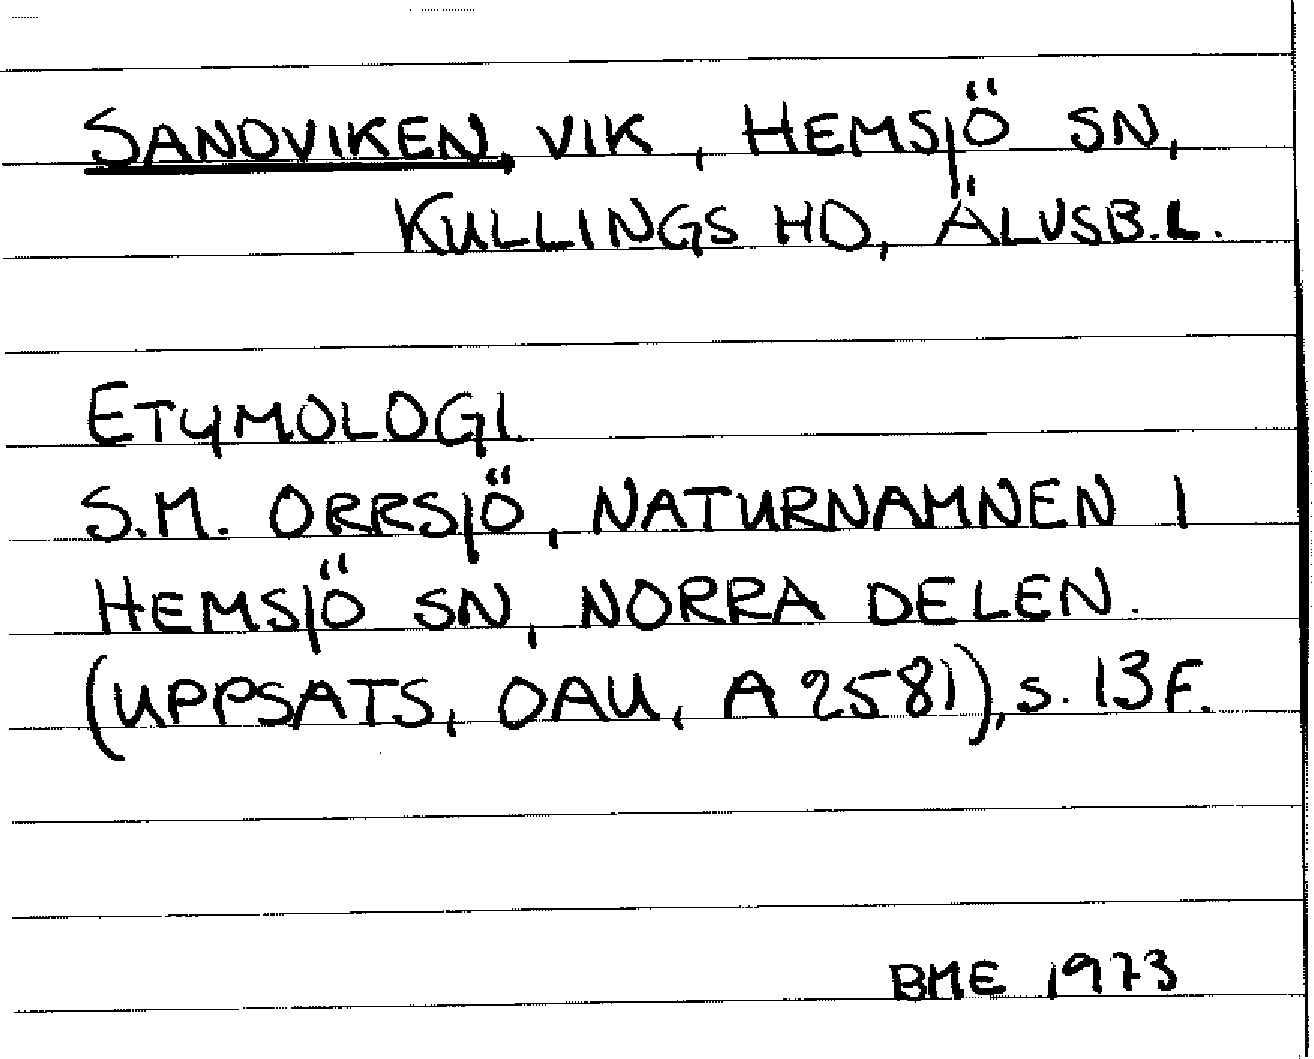 SANDVIKEN, VIK, HEMSJÖ SN,
KULLINGS HD, ÄLVSB.L.
ETYMOLOGI
S.M. ORRSJÖ, NATURNAMNEN I
HEMSJÖ SN, NORRA DELEN.
(UPPSATS, OAU, A 2581), s. 13 F.
BME 1973